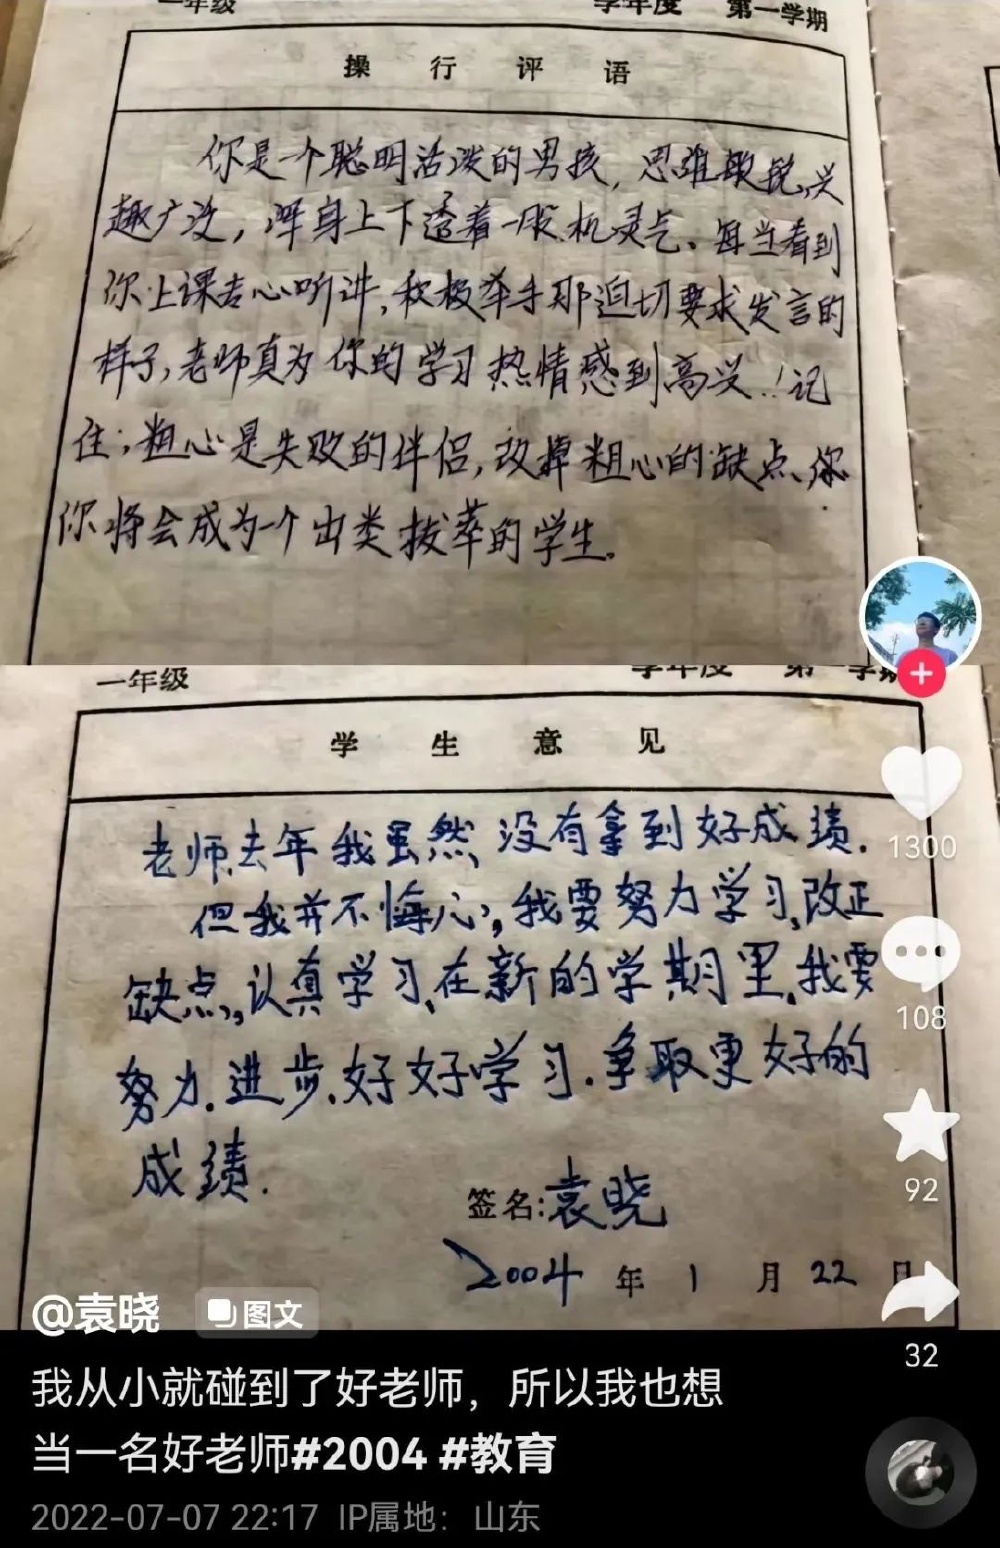 一年级 学年度 第一学期
操行评语
你是一个聪明活泼的男孩，思维敏锐，兴
趣广泛，浑身上下透着一股机灵气。每当看到
你上课专心听讲，积极举手那迫切要求发言的
样子，老师真为你的学习热情感到高兴！记
住：粗心是失败的伴侣，改掉粗心的缺点，你
你将会成为一个出类拔萃的学生。
一年级 学年度 第一学期
学生意见
老师，去年我虽然没有拿到好成绩.
但我并不悔心，我要努力学习，改正
缺点，认真学习，在新的学期里，我要
努力.进步.好好学习.争取更好的
成绩.
签名:袁晓
2004年1月22日
1300
108
92
32
@袁晓 图文
我从小就碰到了好老师，所以我也想
当一名好老师#2004 #教育
2022-07-07 22:17 IP属地：山东